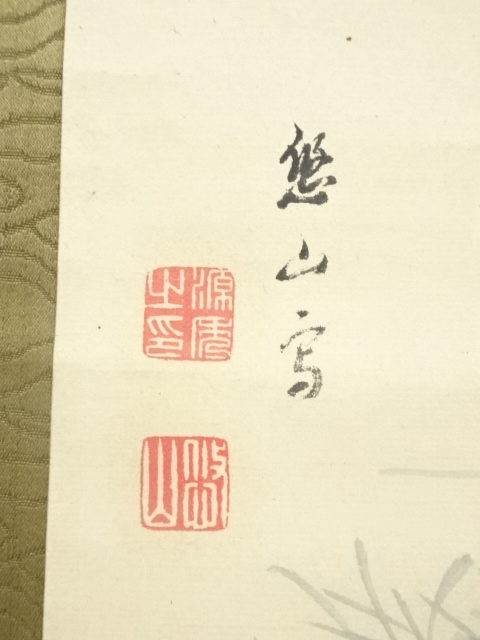 悠山寫
源秀之印
悠山